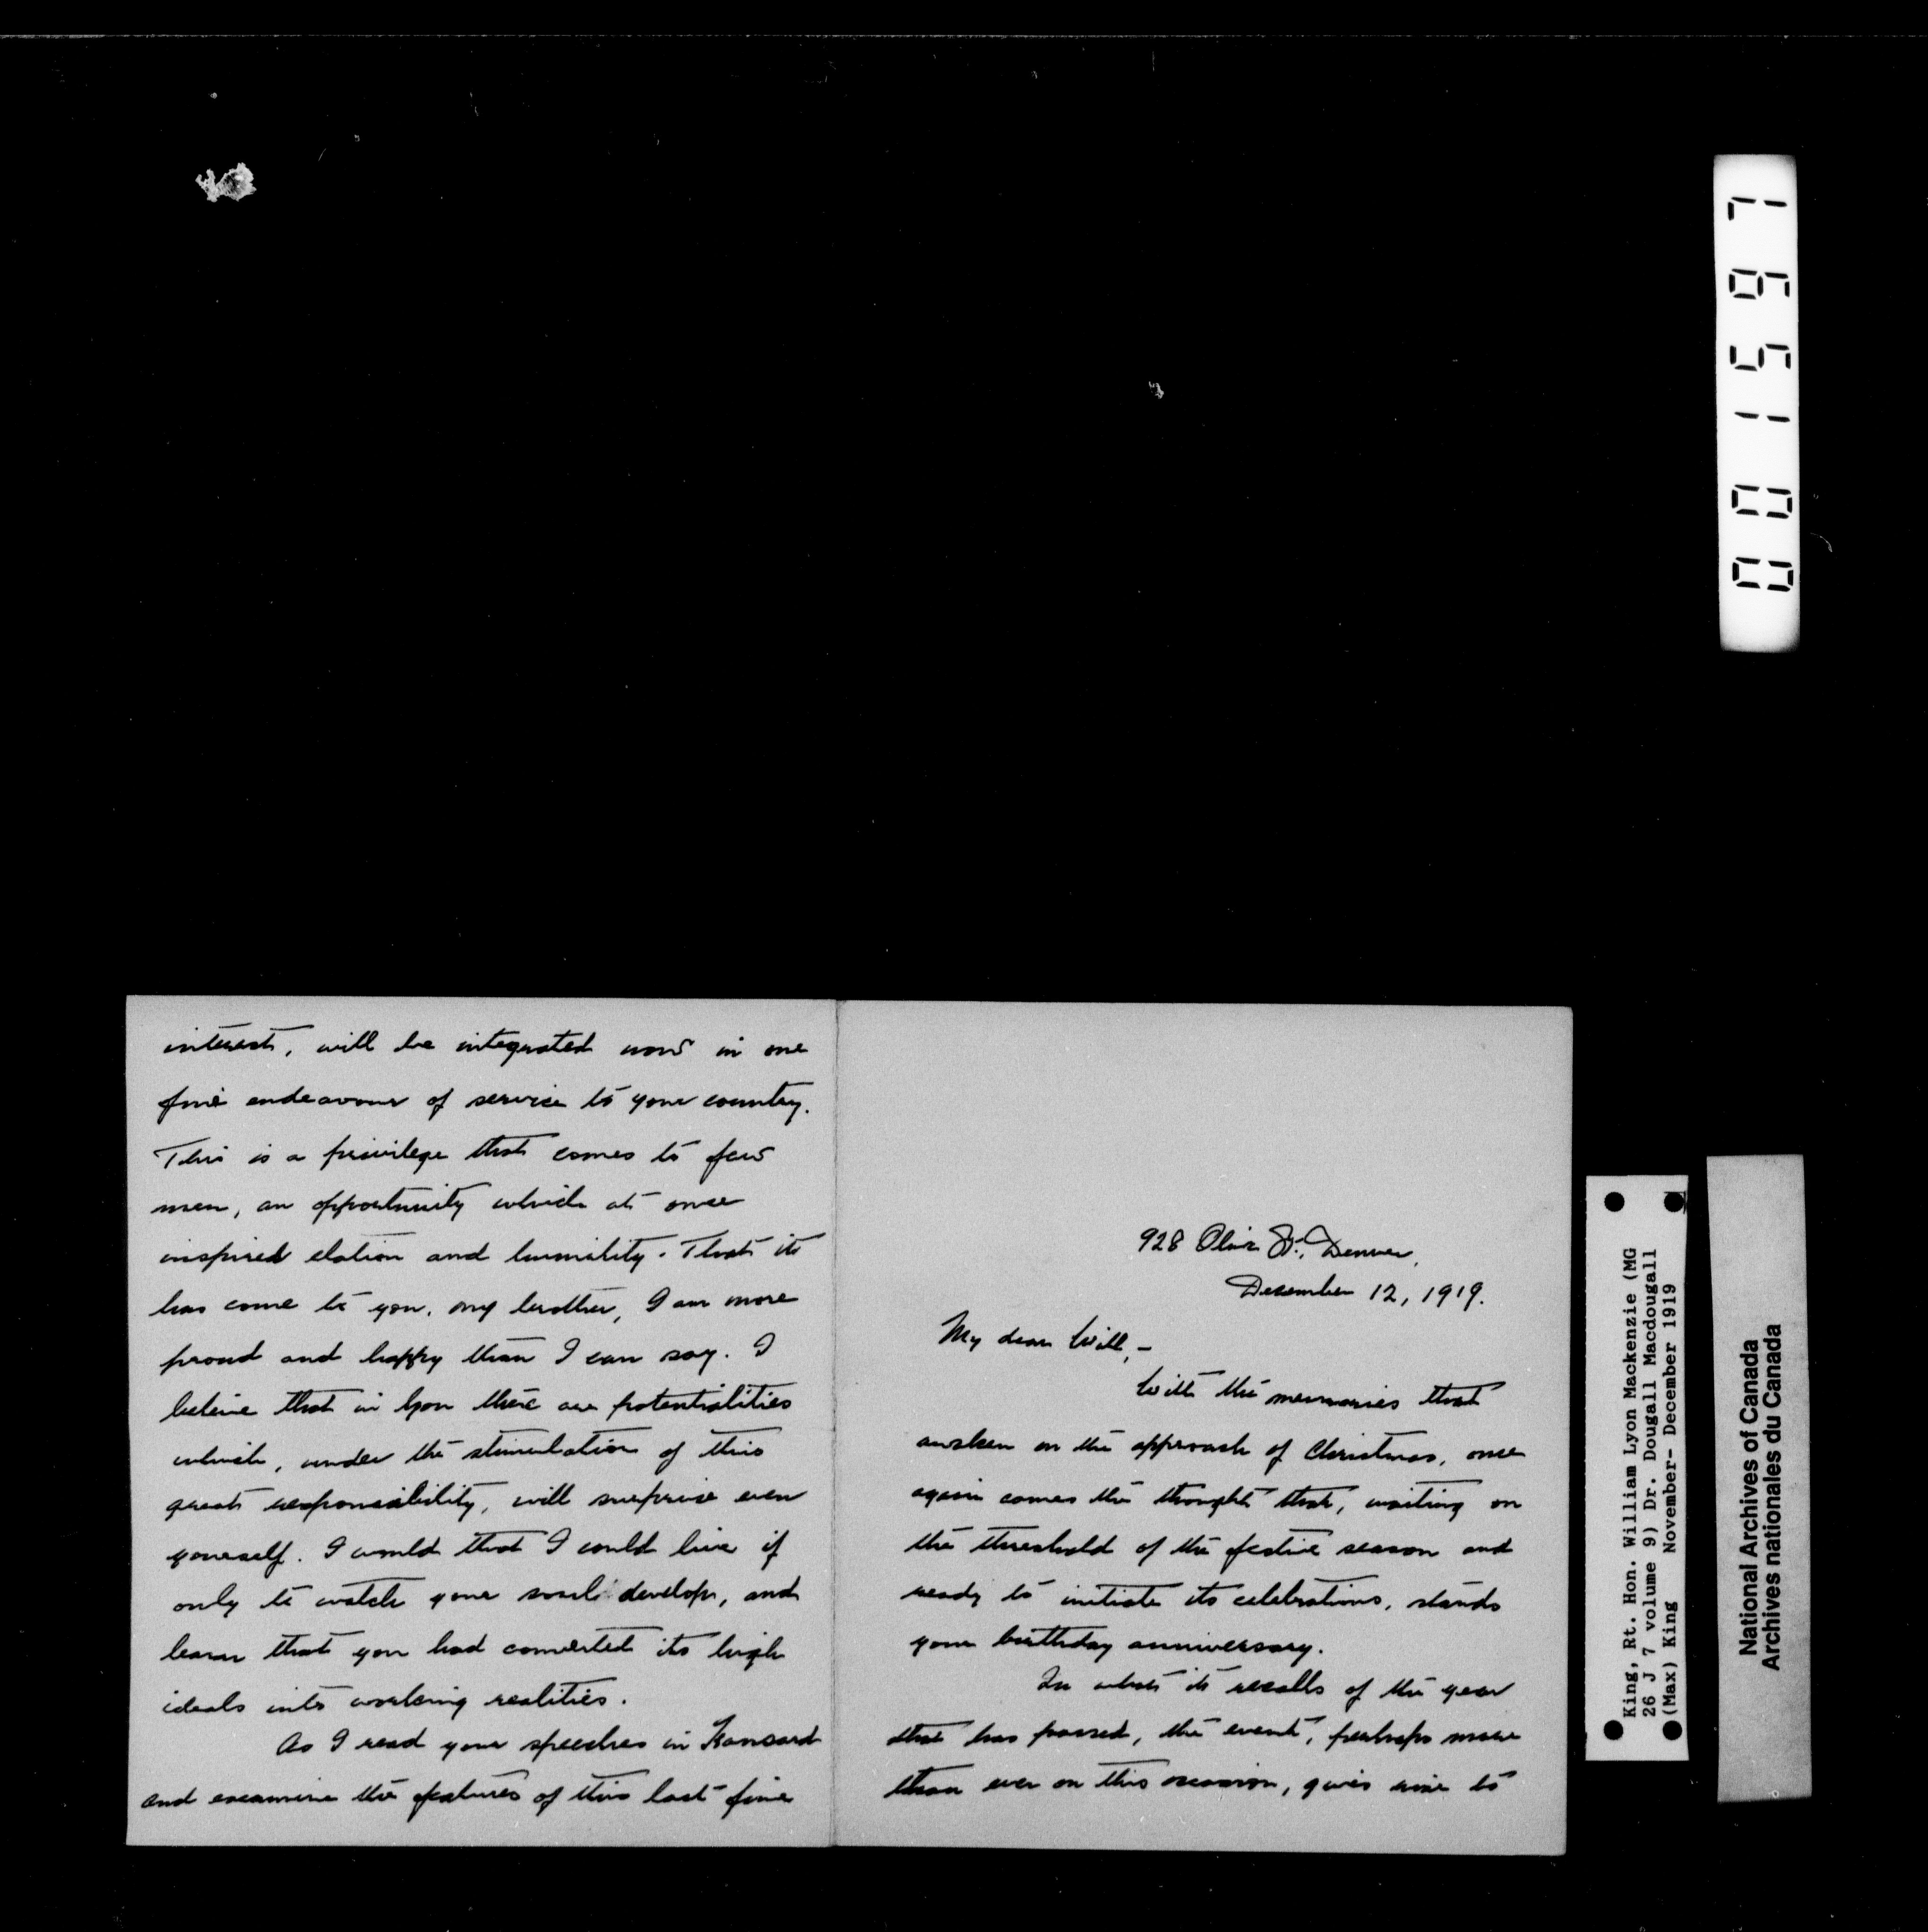 interest, will be integrated now in one
fine endeavour of service to your country.
This is a privilege that comes to few
men, an opportunity which at once
inspires elation and humility. That it
has come to you, my brother, I am more
proud and happy than I can say. I
believe that in you there are potentialities
which, under the stimulation of this
great responsibility, will surprise even
yourself. I would that I could live if
only to watch your soul develop, and
learn that you had converted its high
ideals into working realities.
As I read your speeches in Hansard
and examine the features of this last fine
928 Olive St., Denver,
December 12, 1919.
My dear Will,-
With the memories that
awaken on the approach of Christmas, once
again comes the thought that, waiting on
the threshold of the festive season and
ready to initiate its celebrations, stands
your birthday anniversary.
In what it recalls of the year
that has passed, the event, perhaps more
than ever on this occasion, gives rise to
King, Rt. Hon. William Lyon Mackenzie (MG
26 J 7 volume 9) Dr. Dougall Macdougall
(Max) King November- December 1919
National Archives of Canada
Archives nationales du Canada
001597